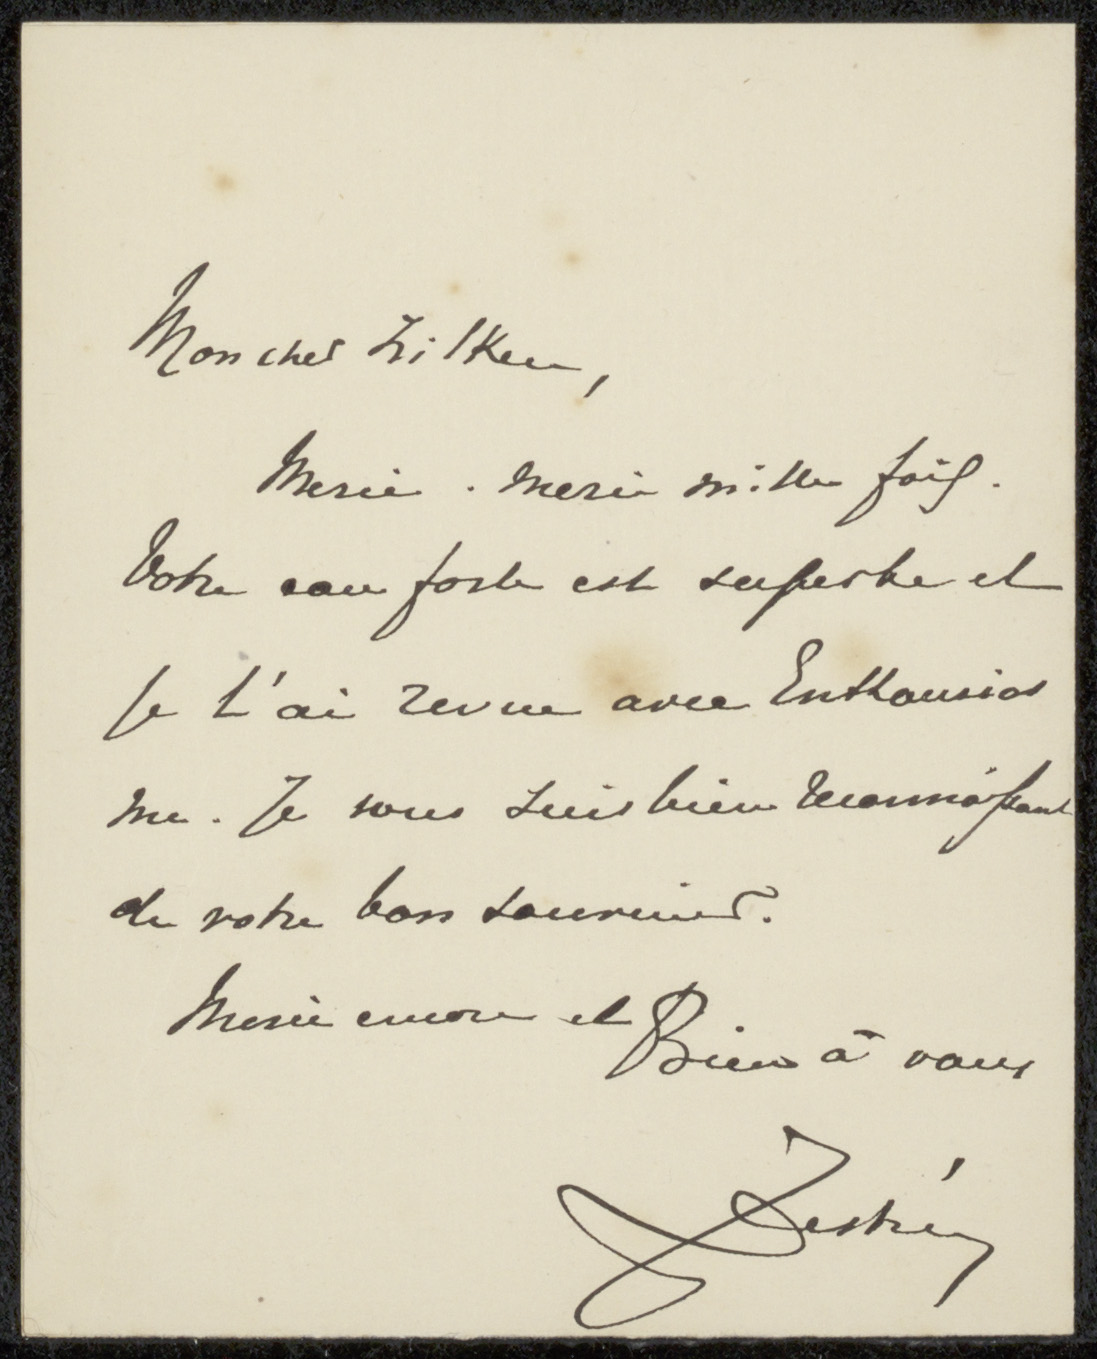 Mon cher Zilken,
Merci. merci mille fois.
Votre eau forte est superbe et
je l'ai revue avec Enthousias
me. Je vous suis bien reconnaissant
de votre bon souvenir.
Merci encore et
Bien à vous